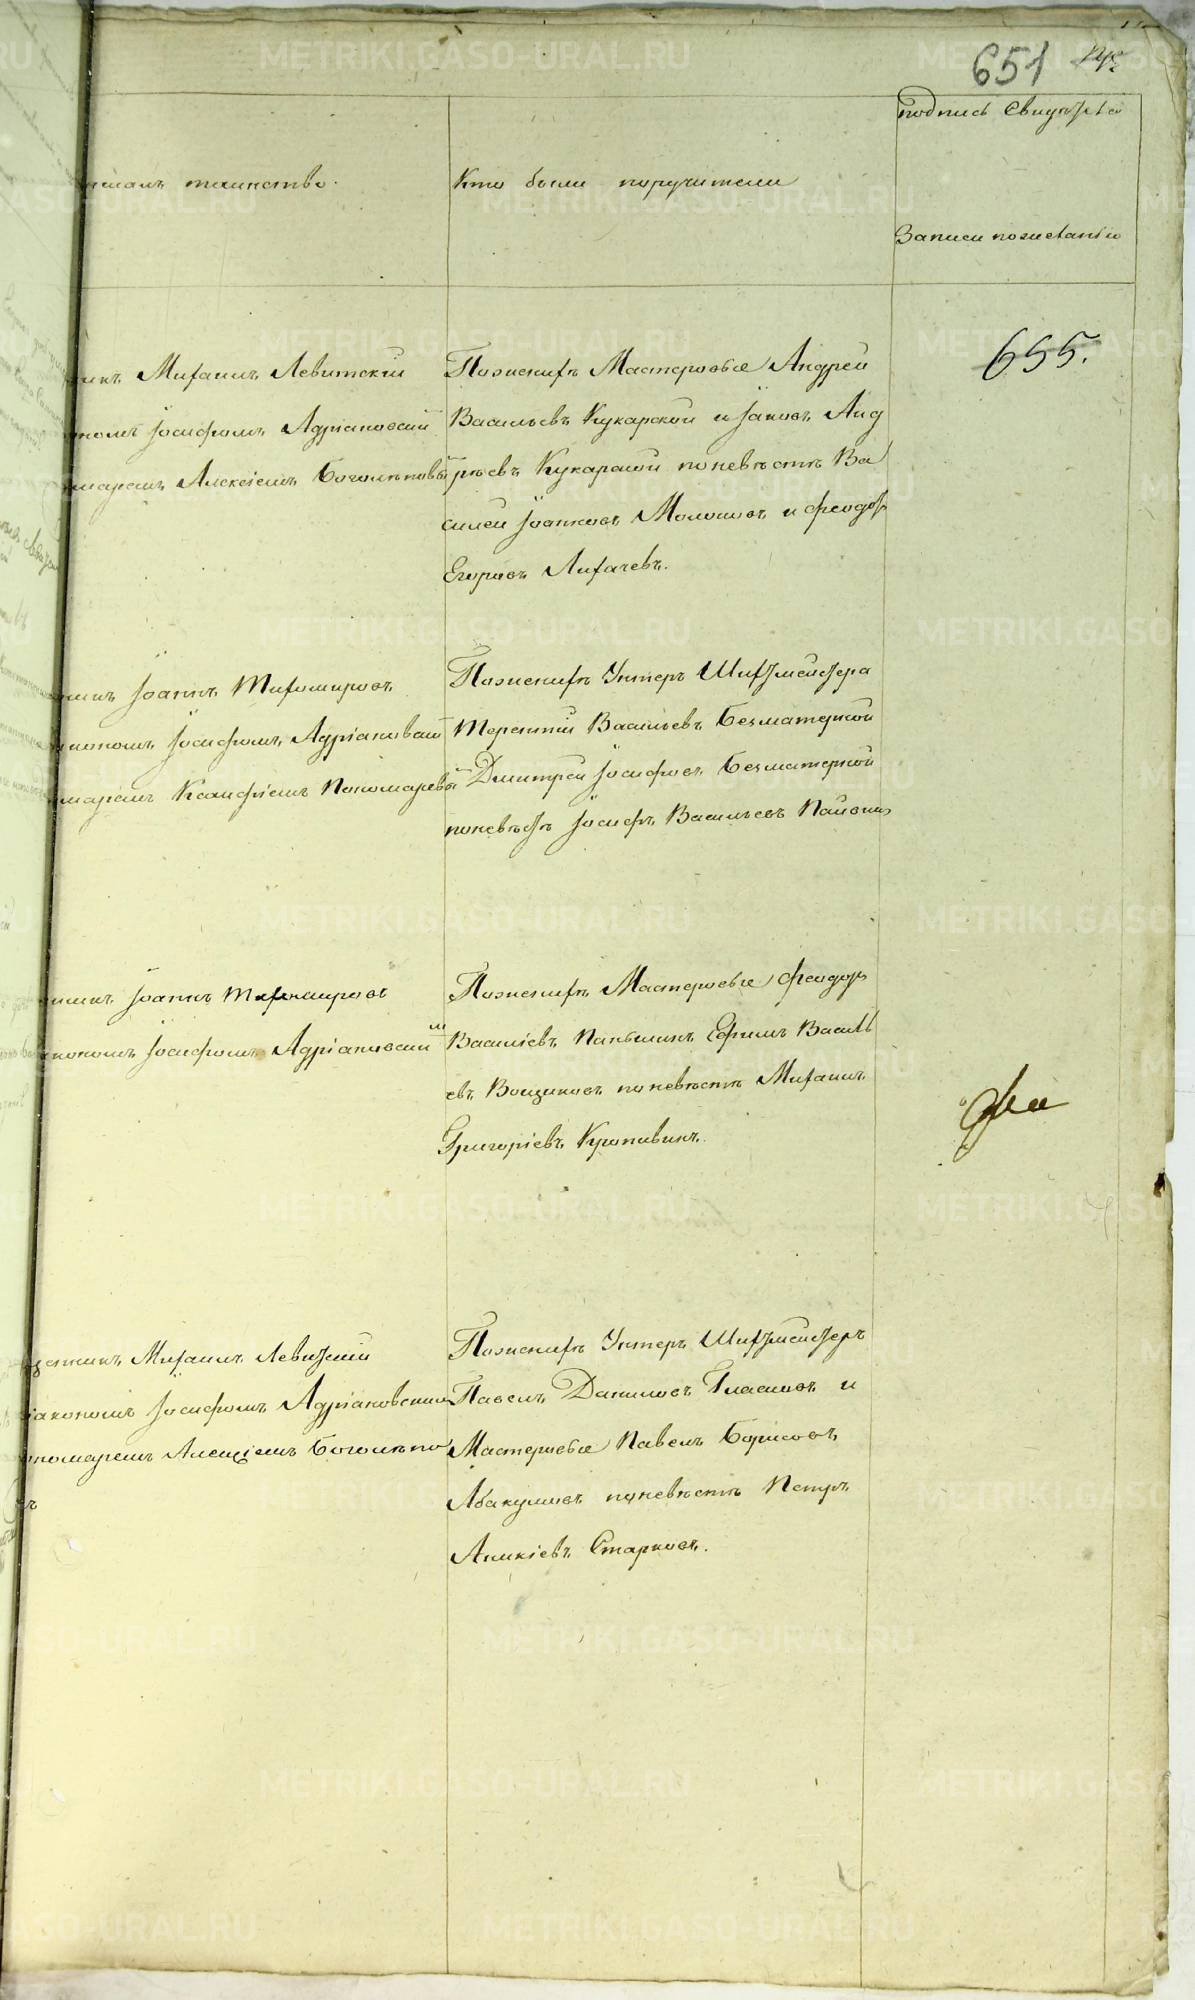 651
подпись свидѣтел
шалъ таинство.
Кто были поручители
Записи по желанію
655.
никъ Михаилъ Левитскій
кономъ Іосифомъ Адріановскій
маремъ Алексіемъ Боголѣповы
По женихѣ Мастеровые Андрей
Васильевъ Кукарской и Іаковъ Анд
рѣевъ Кукарской по невѣстѣ Ва
силей Іоанновъ Молоковъ и Феодоръ
Егоровъ Лихачевъ.
никъ Іоаннъ Тихомировъ
кономъ Іосифомъ Адріановскій
маремъ Ксанфіемъ Пономаревы
По женихѣ Унтеръ Шихтмейстера
Терентій Васильевъ Безматерной
Дмитрей Іосифовъ Безматерной
по невѣстѣ Іосифъ Васильевъ
никъ Іоаннъ Тихомировъ
кономъ Іосифомъ Адріановскимъ
По женихѣ Мастеровые Феодоръ
Василіевъ Паньшинъ Ефимъ Василь
евъ Вощиковъ по невѣстѣ Михаилъ
Григоріевъ Кропивинъ.
щенникъ Михаилъ Левитскій
іакономъ Іосифомъ Адріановскимъ
ономаремъ Алексіемъ Боголѣпо
ъ
По женихѣ Унтеръ Шихтмейстеръ
Павелъ Даниловъ Гласковъ и
Мастеровые Павелъ Борисовъ
Абакумовъ по невѣстѣ Петръ
Аникіевъ Старковъ.
METRIKI.GASO-URAL.RU